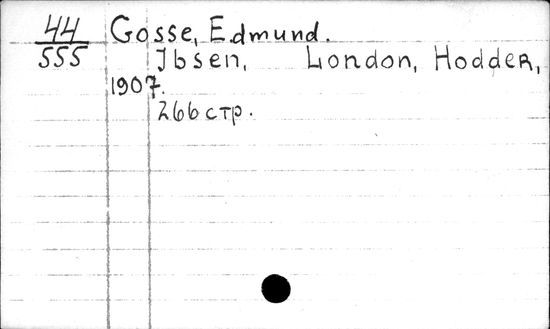 44
555
Gosse, Edmund.
Ibsen, London, Hodder,
1907.
266 стр.